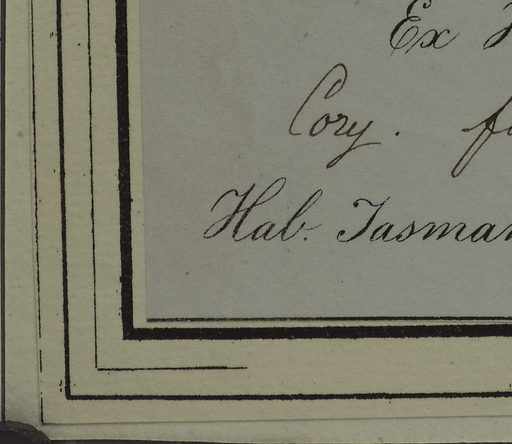 Ex
Cory.
Hab. Tasman